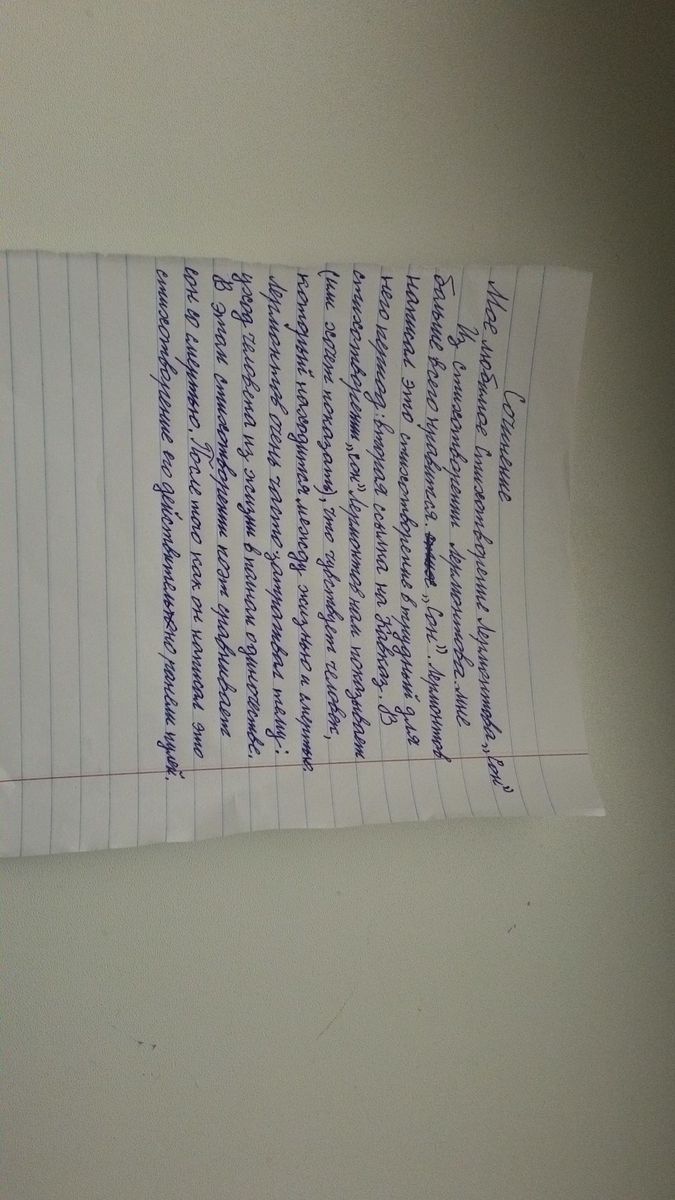 Сочинение
Мое любимое стихотворение Лермонтова „Сон”
Из стихотворений Лермонтова мне
больше всего нравится „Сон”. Лермонтов
написал это стихотворение в трудный для
него период: вторая ссылка на Кавказ. В
стихотворении „Сон” Лермонтов нам показывает
(или хочет показать), что чувствует человек,
который находится между жизнью и смертью.
Лермонтов очень часто затрагивал тему:
уход человека из жизни в полном одиночестве.
В этом стихотворении поэт сравнивает
сон со смертью. После того как он написал это
стихотворение его действительно ранели пулей.